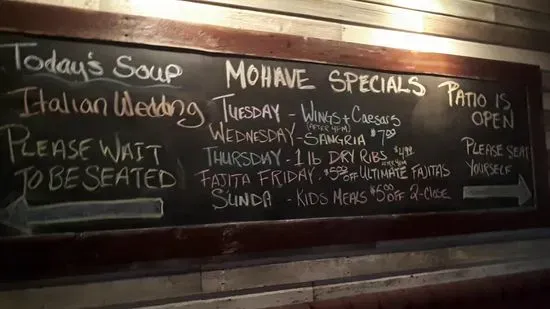 Today's Soup
Italian Wedding
PLEASE WAIT
TO BE SEATED
MOHAVE SPECIALS
TUESDAY - WINGS + CAESARS
(AFTER 4PM)
WEDNESDAY - SANGRIA $7.00
THURSDAY - 1 lb DRY RIBS $4.99
AFTER 4PM
FAJITA FRIDAY - $5.00 OFF ULTIMATE FAJITAS
SUNDA - KIDS MEALS $5.00 OFF 2-CLOSE
PATIO IS
OPEN
PLEASE SEAT
YOURSELF